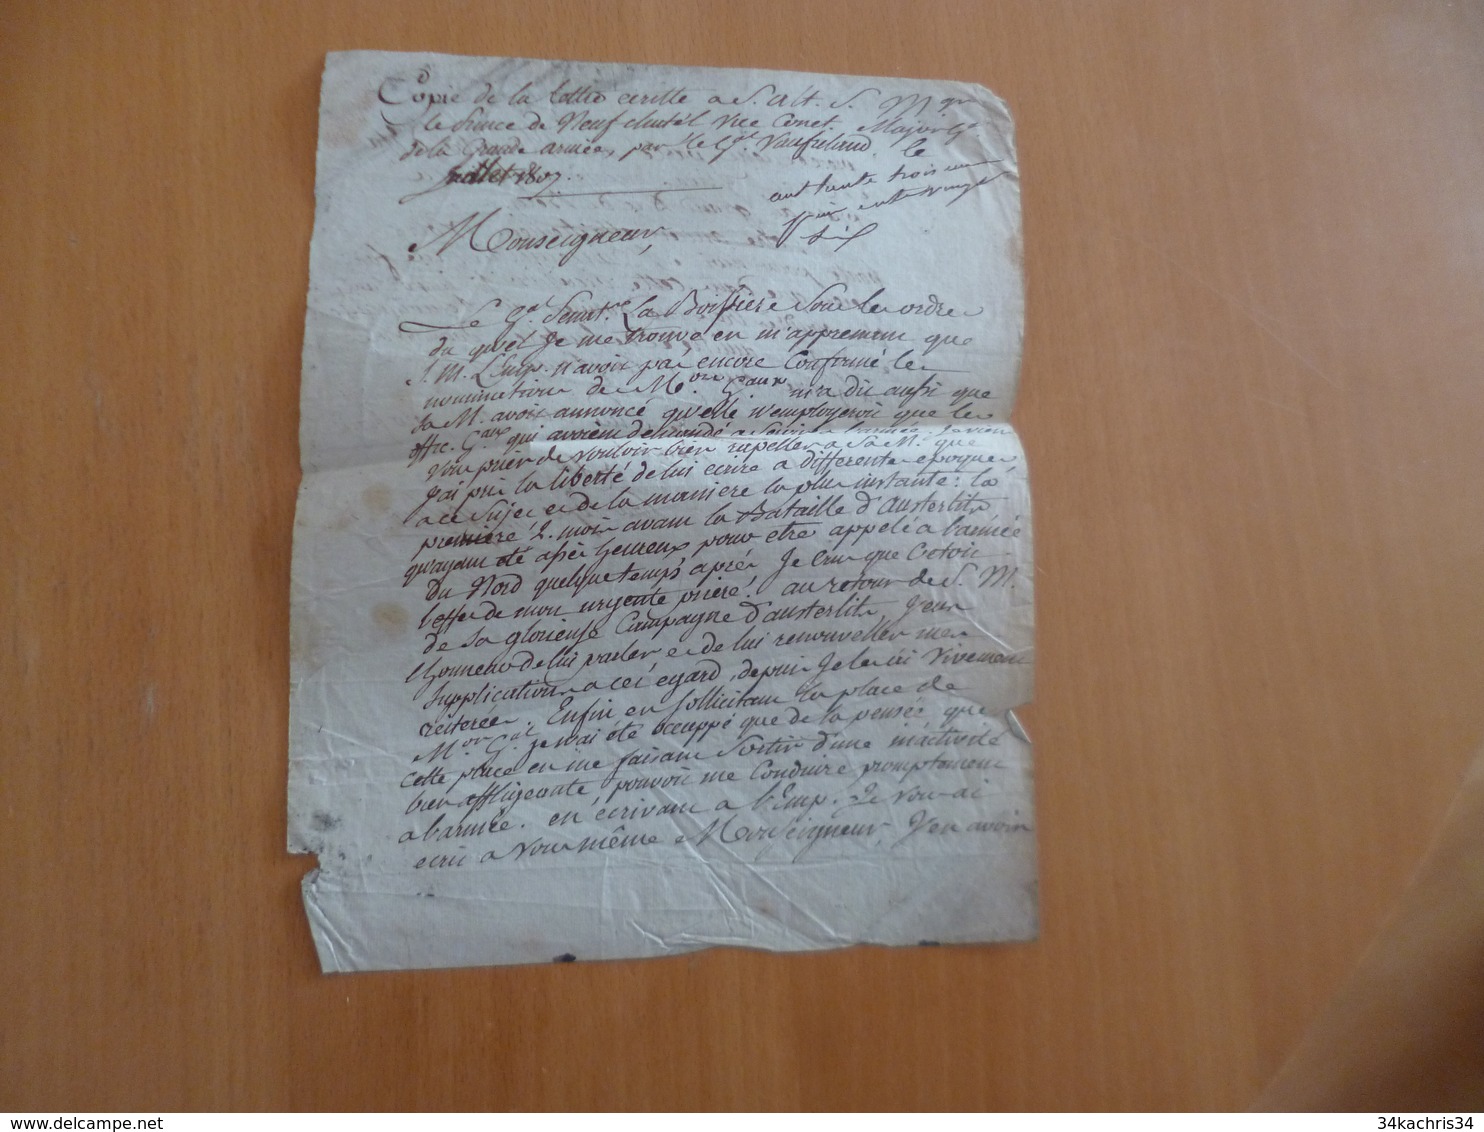 Copie de la lettre ecritte a S. Alt. S. Mgr
le Prince de Neufchatel Vice Conet. Major Gl
de la Grande armée, par le Gal Vaufreland le
Juillet 1807.
Monseigneur,
Le Gl Senatr La Boissiere sous les ordres
du quel Je me trouve en m'apprenant que
S. M. L'Emp. n'avoit pas encore confirmé les
nominations de Mor Gaux m'a dit aussi que
sa M. avoit annoncé qu'elle n'employeroit que les
offic. Gaux qui avoient demandé a Servir a l'armée, Je viens
Vous prier de vouloir bien rapeller a Sa M. que
J'ai pris la liberté de lui ecrire a differentes epoques
a ce Sujet et de la maniere la plus instante: la
premiere 2. mois avant la Bataille d'Austerlits
qu'ayant été assés heureux pour etre appelé a l'armée
du Nord quelque temps aprés Je crus que C'etoit
l'effet de mon urgente priere. au retour de S. M.
de sa glorieuse Campagne d'austerlits J'eus
l'honneur de lui parler et de lui renouveller mes
Supplications a cet egard, depuis Je les ai Vivement
réiterées. Enfin en sollicitant la place de
Mor Gal je n'ai été occuppé que de la pensée que
cette place en me faisant Sortir d'une inactivité
bien affligeante pouvoit me Conduire promptement
a l'armée. en écrivant a l'Emp. Je Vous ai
ecrit a Vous même Monseigneur, J'en avois
34kachris34